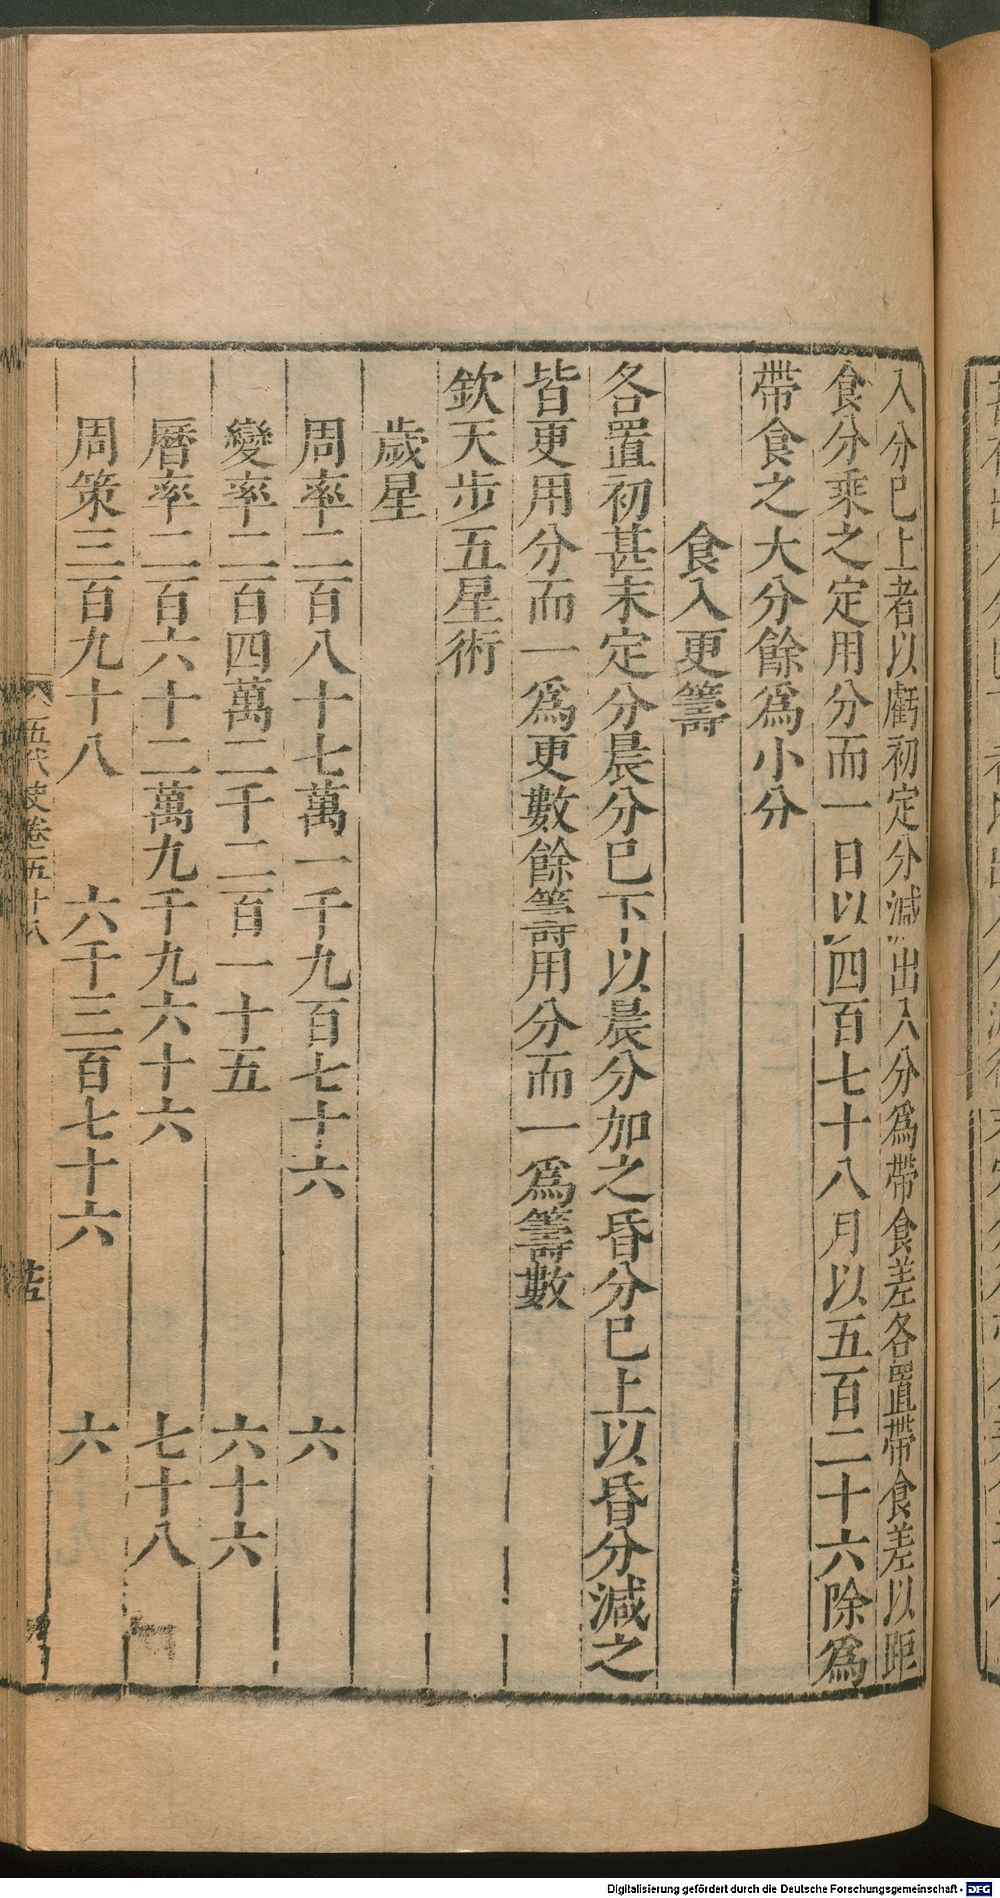 入分已上者以虧初定分減出入分爲帶食差各置帶食差以距
食分乘之定用分而一日以四百七十八月以五百二十六除爲
帶食之大分餘爲小分
食入更籌
各置初甚末定分晨分已下以晨分加之昏分已上以昏分減之
皆更用分而一爲更數餘籌用分而一爲籌數
欽天步五星術
歲星
周率二百八十七萬一千九百七十六 六
變率二百四萬二千二百一十五 六十六
曆率二百六十二萬九千九六十六 七十八
周策三百九十八 六千三百七十六 六
五代史卷五十八
Digitalisierung gefördert durch die Deutsche Forschungsgemeinschaft - DFG